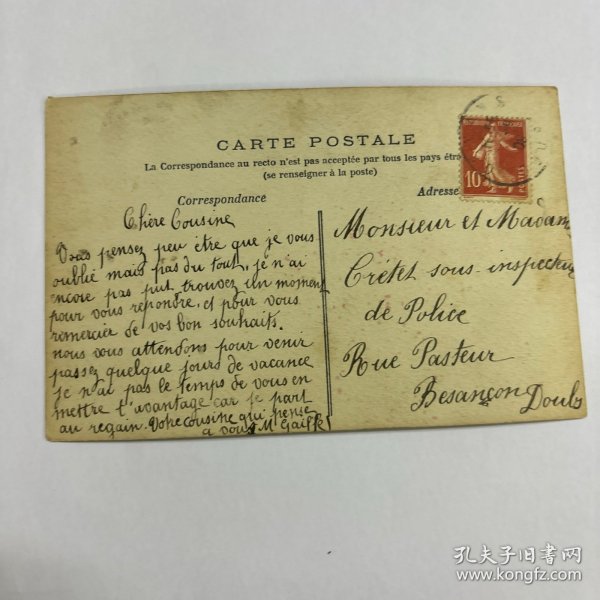 CARTE POSTALE
La Correspondance au recto n'est pas acceptée par tous les pays étra
(se renseigner à la poste)
Correspondance
Adresse
10
Chère Cousine
Vous pensez peu être que je vous
oublié mais pas du tout, je n'ai
encore pas put trouvez un moment
pour vous repondre, et pour vous
remercier de vos bon souhaits.
nous vous attendons pour venir
passez quelque jours de vacance
je n'ai pas le temps de vous en
mettre l'avantage car je part
au regain. Votre cousine qui pense
a vous M
Monsieur et Madam
Crétet sous-inspecteur
de Police
Rue Pasteur
Besançon Doubs
孔夫子旧书网
www.kongfz.com